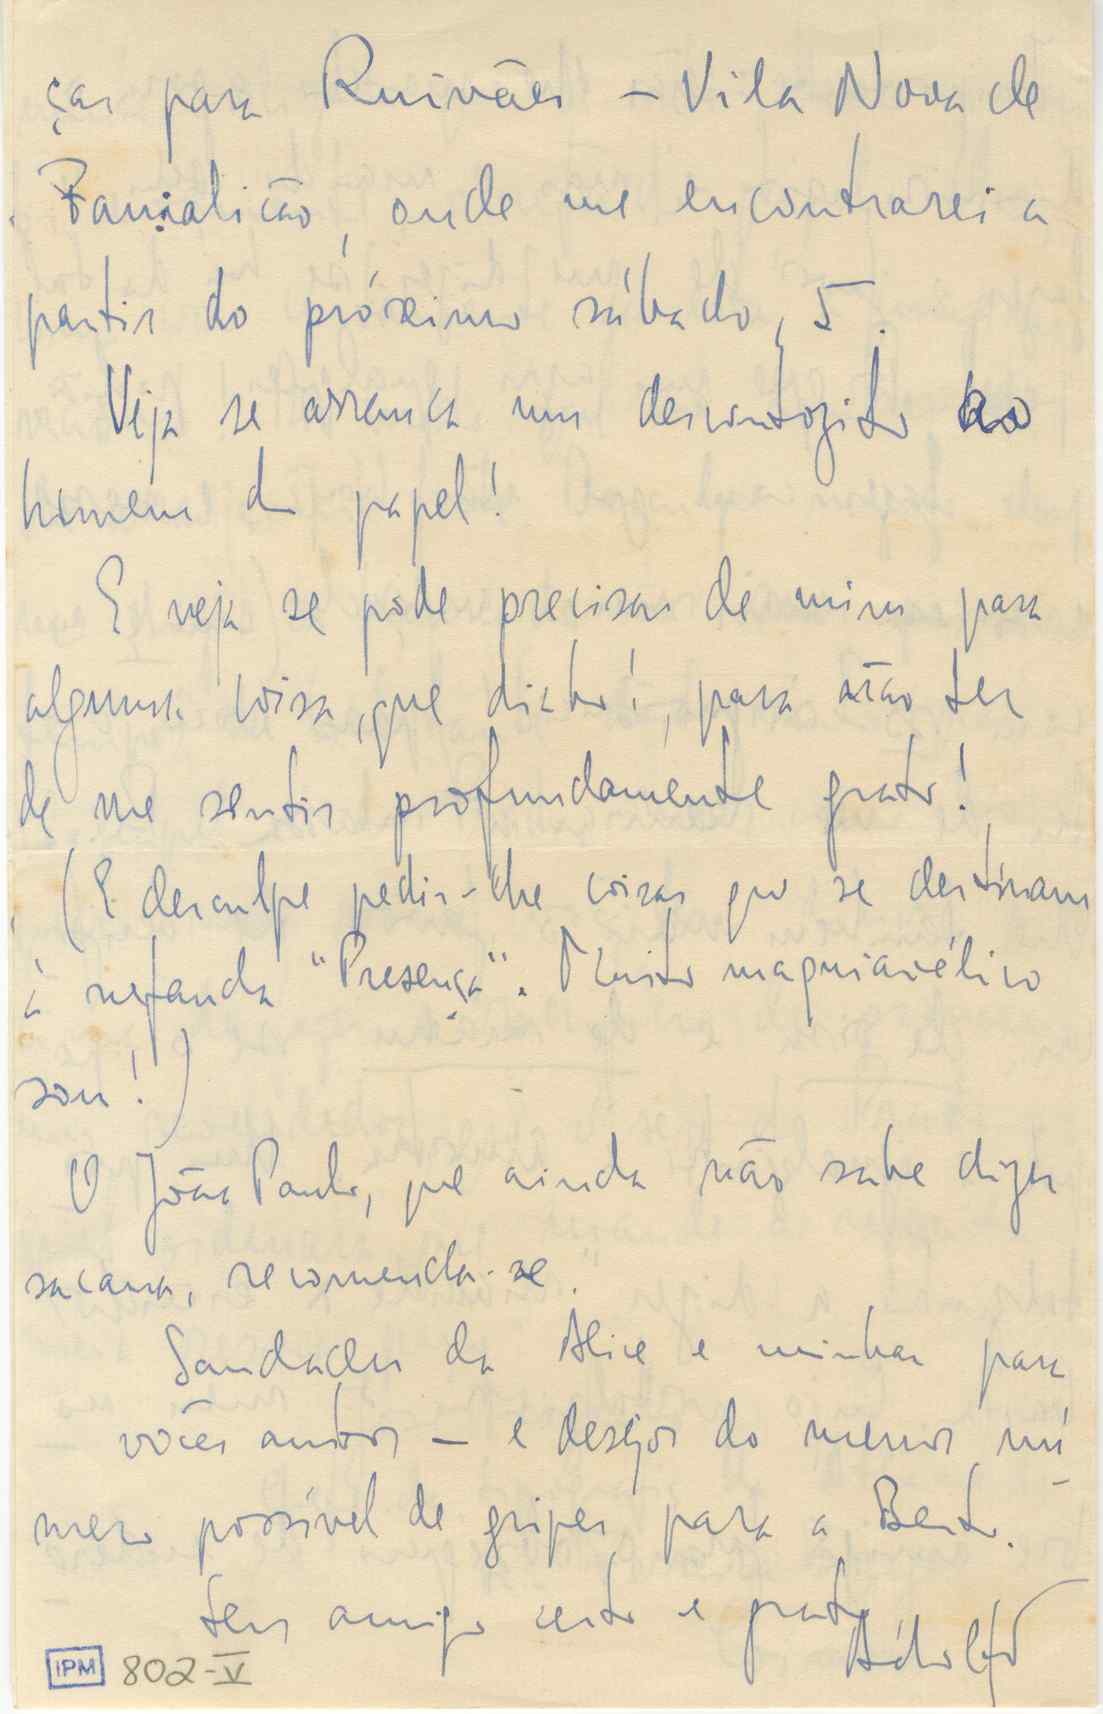 ças para Ruivães - Vila Nova de
Famalicão, onde me encontrarei a
partir do próximo sábado, 5.
Veja se arranca um descontozito ao
homem do papel!
E veja se pode precisar de mim para
alguma coisa, que diabo!, para não ter
de me sentir profundamente grato!
(E desculpe pedir-lhe coisas que se destinam
à nefanda "Presença". Muito maquiavélico
sou!)
O João Paulo, que ainda não sabe dizer
sacana, recomenda-se.
Saudades da Alice e minhas para
vocês ambos - e desejos do menor nú
mero possível de gripes para a Bento.
Seu amigo certo e grato
Adolfo
IPM 802-V